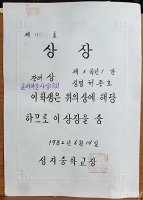 제 호
상장
제 2 학년 1 반
성명 허준호
이 학생은 위의 상에 해당
하므로 이 상장을 줌
1982년 6월 14일
성지중학교장